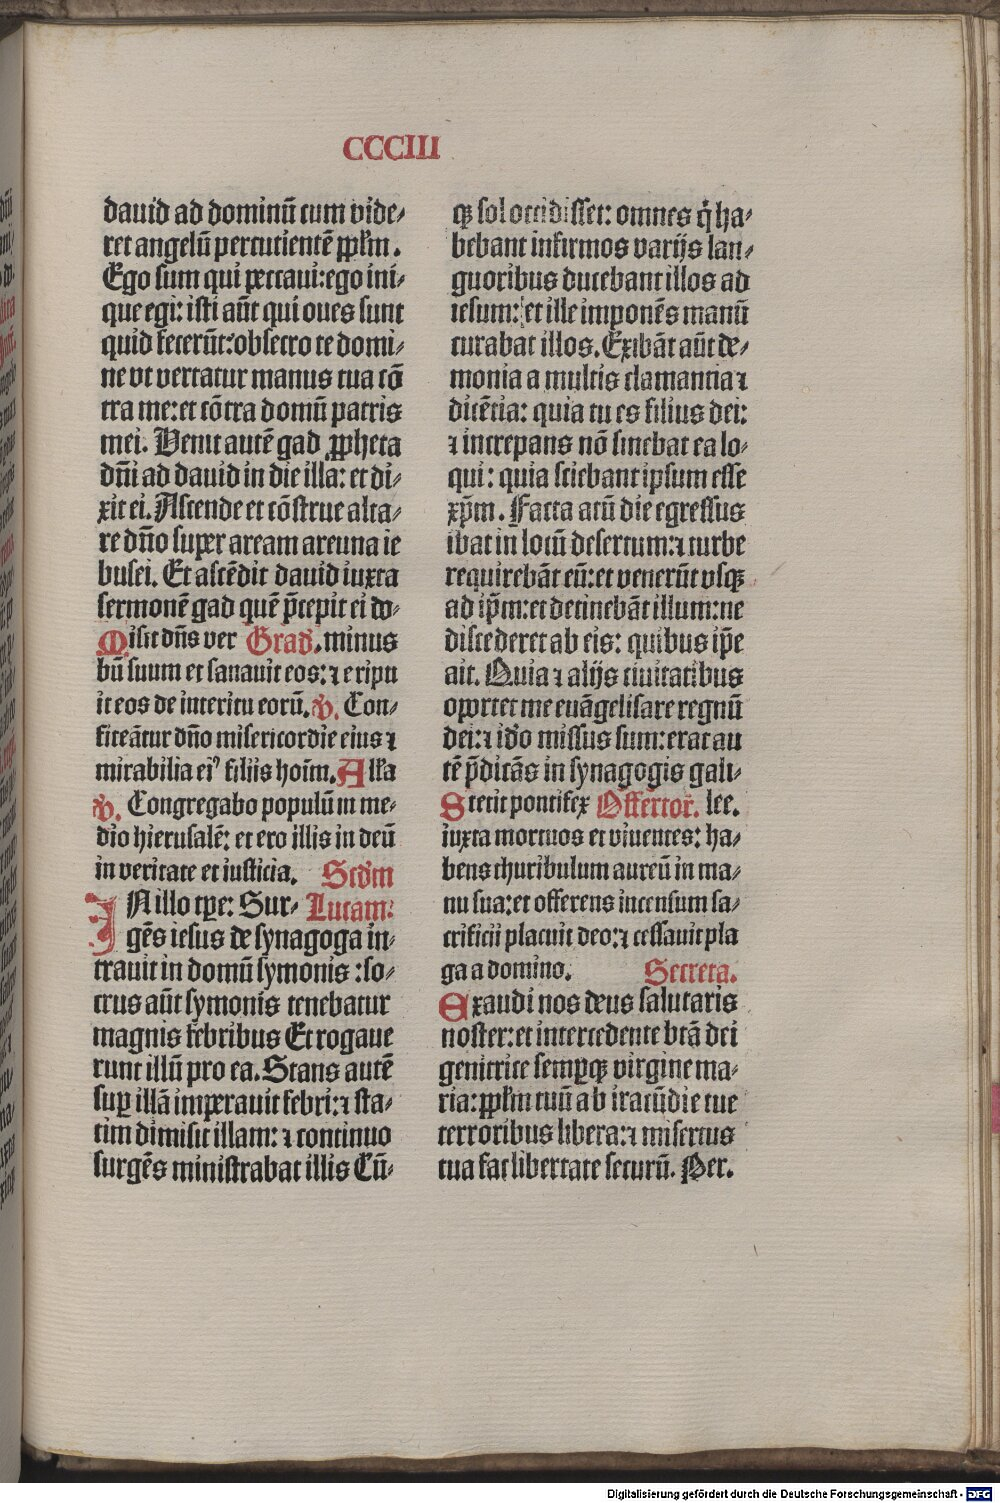 CCCIII
dauid ad dominū cum vide⸗
ret angelū percutientē ppl̄m.
Ego sum qui peccaui:ego ini⸗
que egi: isti aūt qui oues sunt
quid fecerūt:obsecro te domi⸗
ne vt vertatur manus tua cō
tra me:et cōtra domū patris
mei. Venit autē gad ꝓpheta
dn̄i ad dauid in die illa: et di⸗
xit ei. Ascende et cōstrue alta⸗
re dn̄o super aream areuna ie
busei. Et ascēdit dauid iuxta
sermonē gad quē p̄cepit ei do⸗
Misit dn̄s ver Grad̄. minus
bū suum et sanauit eos:⁊ eripu
it eos de interitu eorū. V̄. Con⸗
fiteātur dn̄o misericordie eius ⁊
mirabilia eiꝰ filiis hoīm. All̄a
V̄. Congregabo populū in me⸗
dio hierusalē: et ero illis in deū
in veritate et iusticia. Scd̄m
IN illo tꝑe: Sur⸗ Lucam:
gēs iesus de synagoga in⸗
trauit in domū symonis :so⸗
crus aūt symonis tenebatur
magnis febribus Et rogaue
runt illū pro ea. Stans autē
suꝑ illā imperauit febri:⁊ sta⸗
tim dimisit illam: ⁊ continuo
surgēs ministrabat illis Cū⸗
qꝫ sol occidisset: omnes q̇ ha⸗
bebant infirmos varijs lan⸗
guoribus ducebant illos ad
iesum: et ille imponēs manū
curabat illos. Exibāt aūt de⸗
monia a multis clamantia ⁊
dicētia: quia tu es filius dei:
⁊ increpans nō sinebat ea lo⸗
qui: quia sciebant ipsum esse
xp̄m. Facta autē die egressus
ibat in locū desertum:⁊ turbe
requirebāt eū:et venerūt vsqꝫ
ad ip̄m:et detinebāt illum:ne
discederet ab eis: quibus ip̄e
ait. Quia ⁊ alijs ciuitatibus
oportet me euāgelisare regnū
dei:⁊ id̄o missus sum:erat au
tē p̄dicās in synagogis gali⸗
Stetit pontifex Offertor̄. lee.
iuxta mortuos et viuentes: ha⸗
bens thuribulum aureū in ma⸗
nu sua:et offerens incensum sa⸗
crificii placuit deo:⁊ cessauit pla
ga a domino. Secreta.
Exaudi nos deus salutaris
noster:et intercedente btā dei
genitrice semꝑqꝫ virgine ma⸗
ria:ppl̄m tuū ab iracūdie tue
terroribus libera:⁊ misertus
tua fac libertate securū. Per.
Digitalisierung gefördert durch die Deutsche Forschungsgemeinschaft - DFG